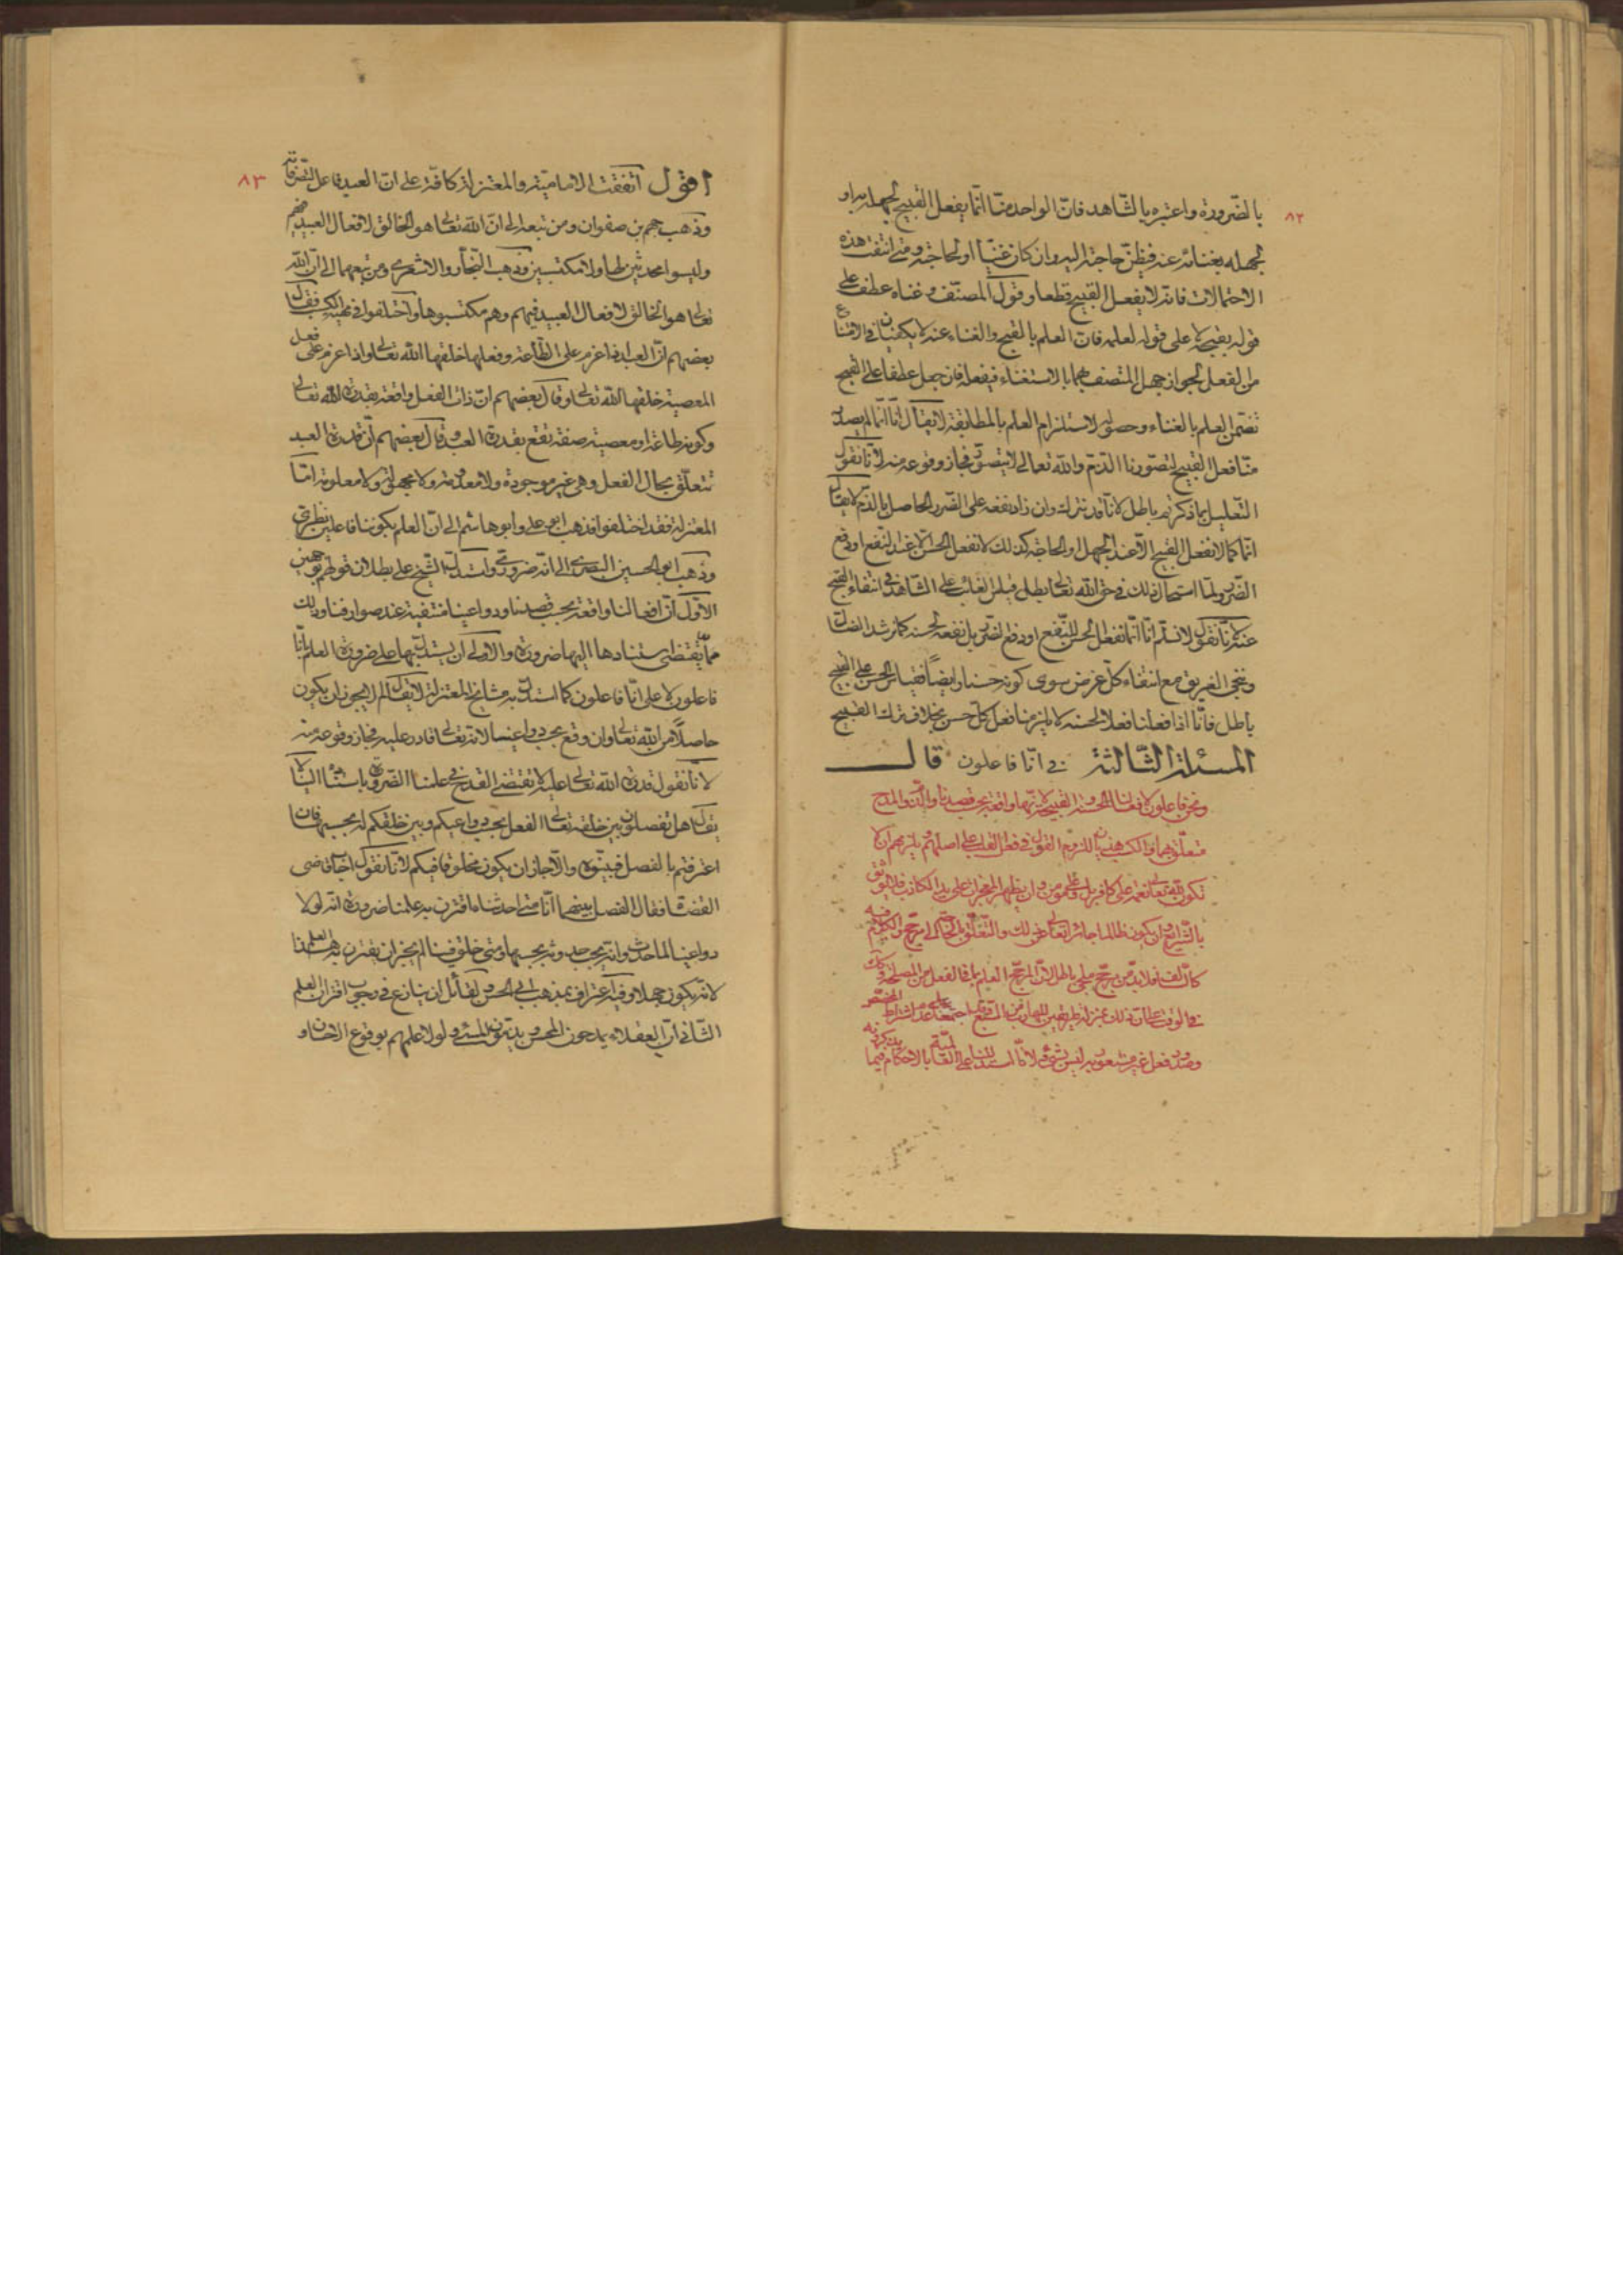 ٨٢
بالضرورة واعتبره بالشاهد فانّ الواحد منّا انّما يفعل القبيح لجهله به او
لجهله بغنائه عنه فيظنّ حاجته اليه وان كان غنيّا او لحاجته ومتى انتفت هذه
الاحتمالات فانه لا يفعل القبيح قطعا وقول المصنّف وغناه عطف على
قوله بقبحه لا على قوله لعلمه فانّ العلم بالقبح والغناء عنه لا يكفيان في الامتناع
من الفعل لجواز جهل المتصف بهما بالاستغناء فيفعله فان جعل عطفا على القبح
تضمن العلم بالغناء وحصوله لاستلزام العلم بالمطابقة لا يقال انّا انّما لم يصدر
منّا فعل القبيح لتصوّرنا الذمّ والله تعالى لا يتصوّر فجاز وقوعه منه لانّا نقول
التعليل بما ذكرتم باطل لانّا قد نتركه وان زاد نفعه على الضرر الحاصل بالذم لا يقال
انّا كما لا نفعل القبيح الّا عند الجهل او الحاجة كذلك لا نفعل الحسن الّا عند النفع او دفع
الضرر ولمّا استحال ذلك في حق الله تعالى بطل قياس الغائب على الشاهد في انتفاء القبيح
عنه لانّا نقول لا نسلّم انّا انّما نفعل الحسن للنفع او دفع الضرر بل نفعله لحسنه كما نرشد الضال
وننجي الغريق مع انتفاء كلّ غرض سوى كونه حسنا وايضاً فقياس الحسن على القبيح
باطل فانّا اذا فعلنا فعلا لحسنه لا يلزمنا فعل كلّ حسن بخلاف ترك القبيح
المسئلة الثالثة في انّا فاعلون قال
ونحن فاعلون لافعالنا الحسنة والقبيحة لانّها واقعة بحسب قصدنا والذم والمدح
متعلّق بهما والكسب هذيان للزوم القول في فعل القلب على اصلهم ويلزمهم ان لا
تكون لله تعالى نعمة على كافر بل ولا على مؤمن وان يظهر المعجزات على يد الكاذب فلا يوثق
بالشرايع وان يكون ظالما جائرا تعالى عن ذلك والتعلّق بالحاجة الى مرجّح والكلام فيه
كالسالف فلا بدّ من مرجّح ملجئ باطل لانّ المرجّح العلم بما في الفعل من المصلحة
في الوقت على انّ ذلك بمنزلة طريقين للهارب من السبع
وصدور فعل غير مشعور به ليس بشيء لانّا استدللنا على العالمية بالاحكام فيما
٨٣
اقول اتفقت الامامية والمعتزلة كافة على انّ العبد فاعل لتصرفاته
وذهب جهم بن صفوان ومن تبعه الى انّ الله تعالى هو الخالق لافعال العبيد فيهم
وليسوا محدثين لها ولا مكتسبين وذهب النجار والاشعري ومن تبعهما الى انّ الله
تعالى هو الخالق لافعال العبيد فيهم وهم مكتسبوها واختلفوا في تفسير الكسب فقال
بعضهم انّ العبد اذا عزم على الطاعة وفعلها خلقها الله تعالى واذا عزم على فعل
المعصية خلقها الله تعالى وقال بعضهم انّ ذات الفعل واقعة بقدرة الله تعالى
وكونه طاعة او معصية صفة تقع بقدرة العبد وقال بعضهم انّ قدرة العبد
تتعلّق بحال الفعل وهي غير موجودة ولا معدومة ولا مجهولة ولا معلومة امّا
المعتزلة فقد اختلفوا فذهب ابو علي وابو هاشم الى انّ العلم بكوننا فاعلين نظري
وذهب ابو الحسين البصري الى انّه ضروري واستدل الشيخ على بطلان قولهم بوجهين
الاوّل انّ افعالنا واقعة بحسب قصدنا ودواعينا منتفية عند صوارفنا وذلك
ممّا يقتضي استنادها الينا ضرورة والاولى ان يستدل بهما على ضرورة العلم بانّا
فاعلون لا على انّا فاعلون كما استدل به مشايخ المعتزلة لا يقال لم لا يجوز ان يكون
حاصلاً من الله تعالى وان وقع بحسب دواعينا لانه تعالى قادر عليه فجاز وقوعه منه
لانّا نقول قدرة الله تعالى عليه لا تقتضي القدح في علمنا الضروري باستناده الينا لا
يقال هل تفصلون بين خلقه تعالى الفعل بحسب دواعيكم وبين خلقكم له بحسبها فان
اعترفتم بالفصل فبيّنوه والّا جاز ان يكون مخلوقا فيكم لانّا نقول اجاب قاضي
القضاة فقال الفصل بينهما انّا متى احدثناه ما اقترن به علمنا ضرورة انه لولا
دواعينا لما حدث وانه يجب حدوثه بحسبها ومتى خلق فينا لم يجز ان يقترن به هذا العلم
لانه يكون جهلا وفيه اعتراف بمذهب ابي الحسين لقائل ان ينازع في وجوب اقتران العلم
الثاني انّ العقلاء يمدحون المحسن ويذمون المسيء ولولا علمهم بوقوع الاحسان و